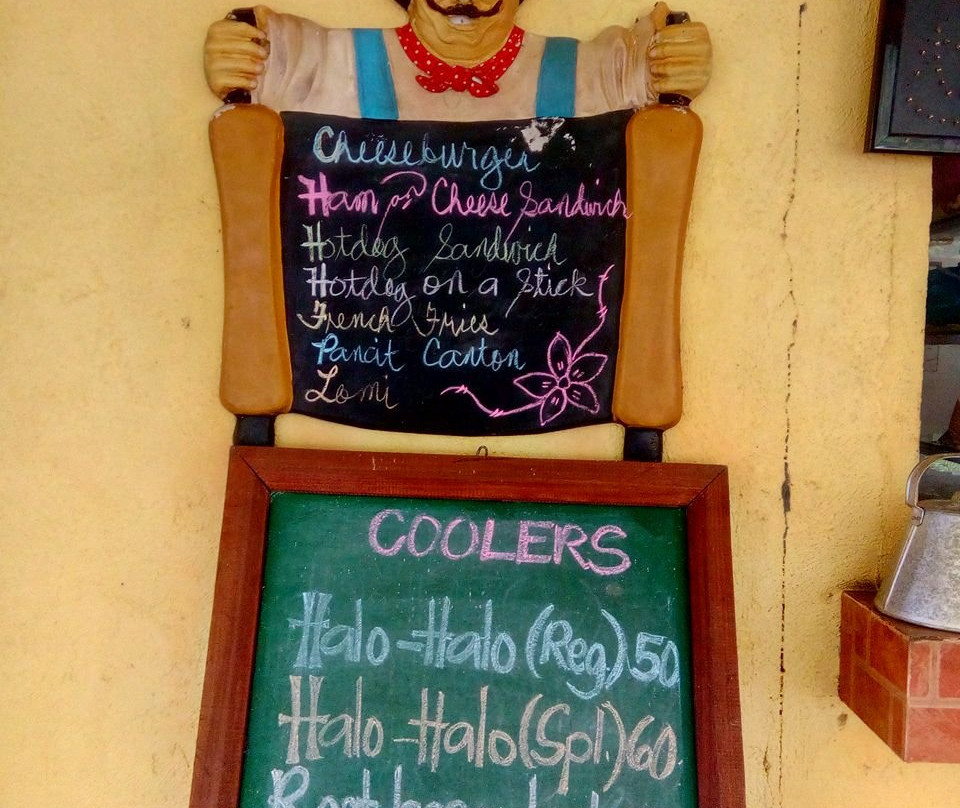 Cheeseburger
Ham or Cheese Sandwich
Hotdog Sandwich
Hotdog on a Stick
French Fries
Pancit Canton
Lomi
COOLERS
Halo-Halo (Reg.) 50
Halo-Halo (Spl.) 60